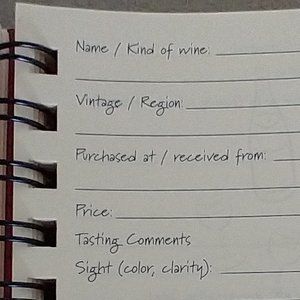 Name / Kind of wine:
Vintage / Region:
Purchased at / received from:
Price:
Tasting Comments
Sight (color, clarity):